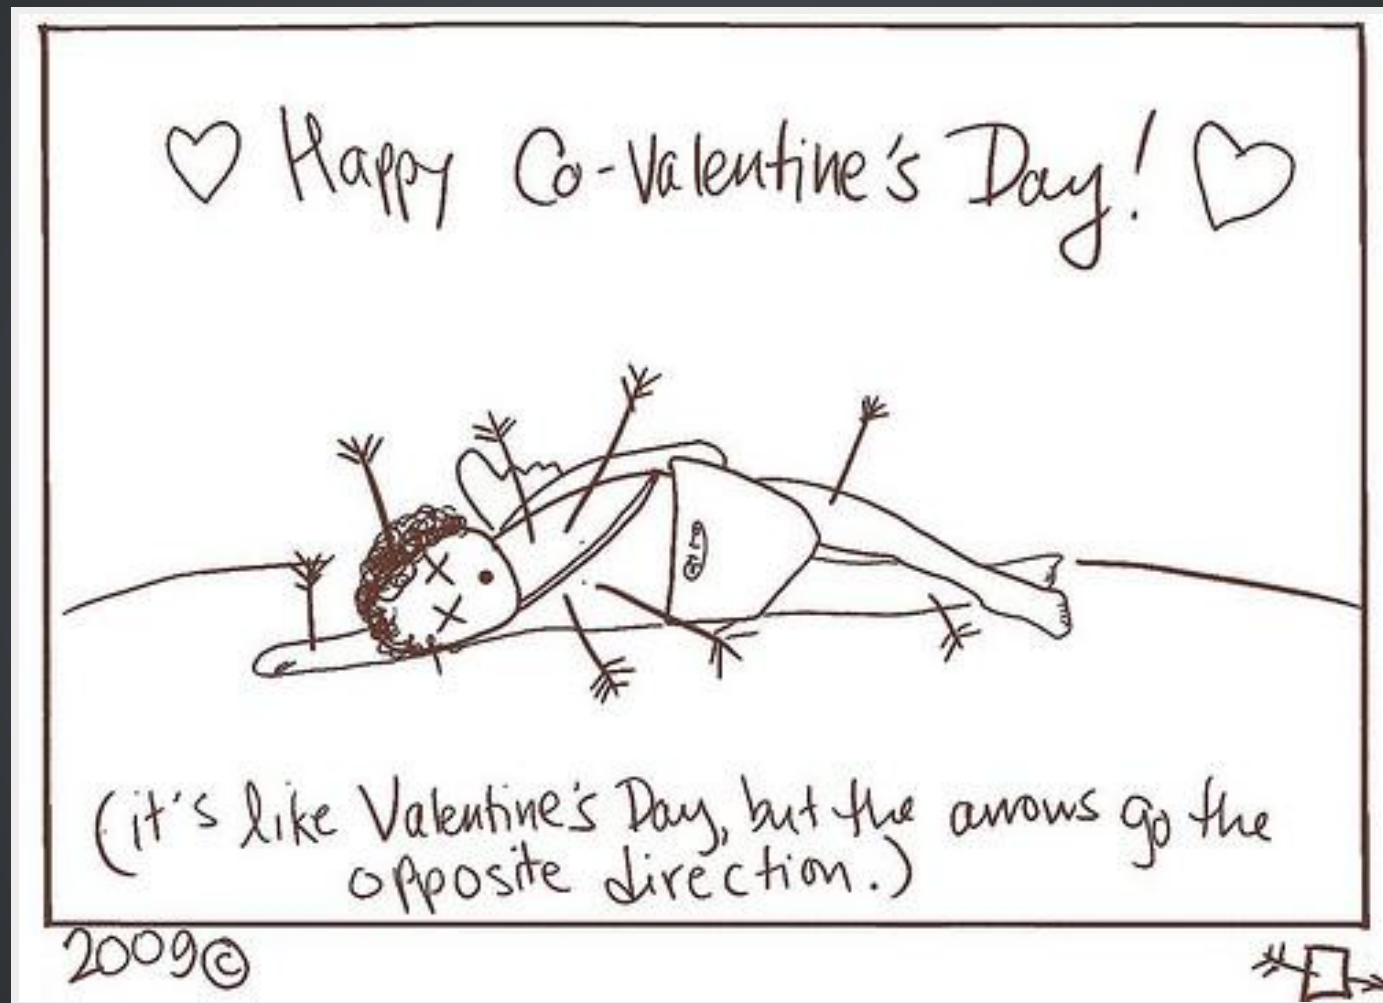 ♡ Happy Co-Valentine's Day! ♡
(it's like Valentine's Day, but the arrows go the
opposite direction.)
2009©